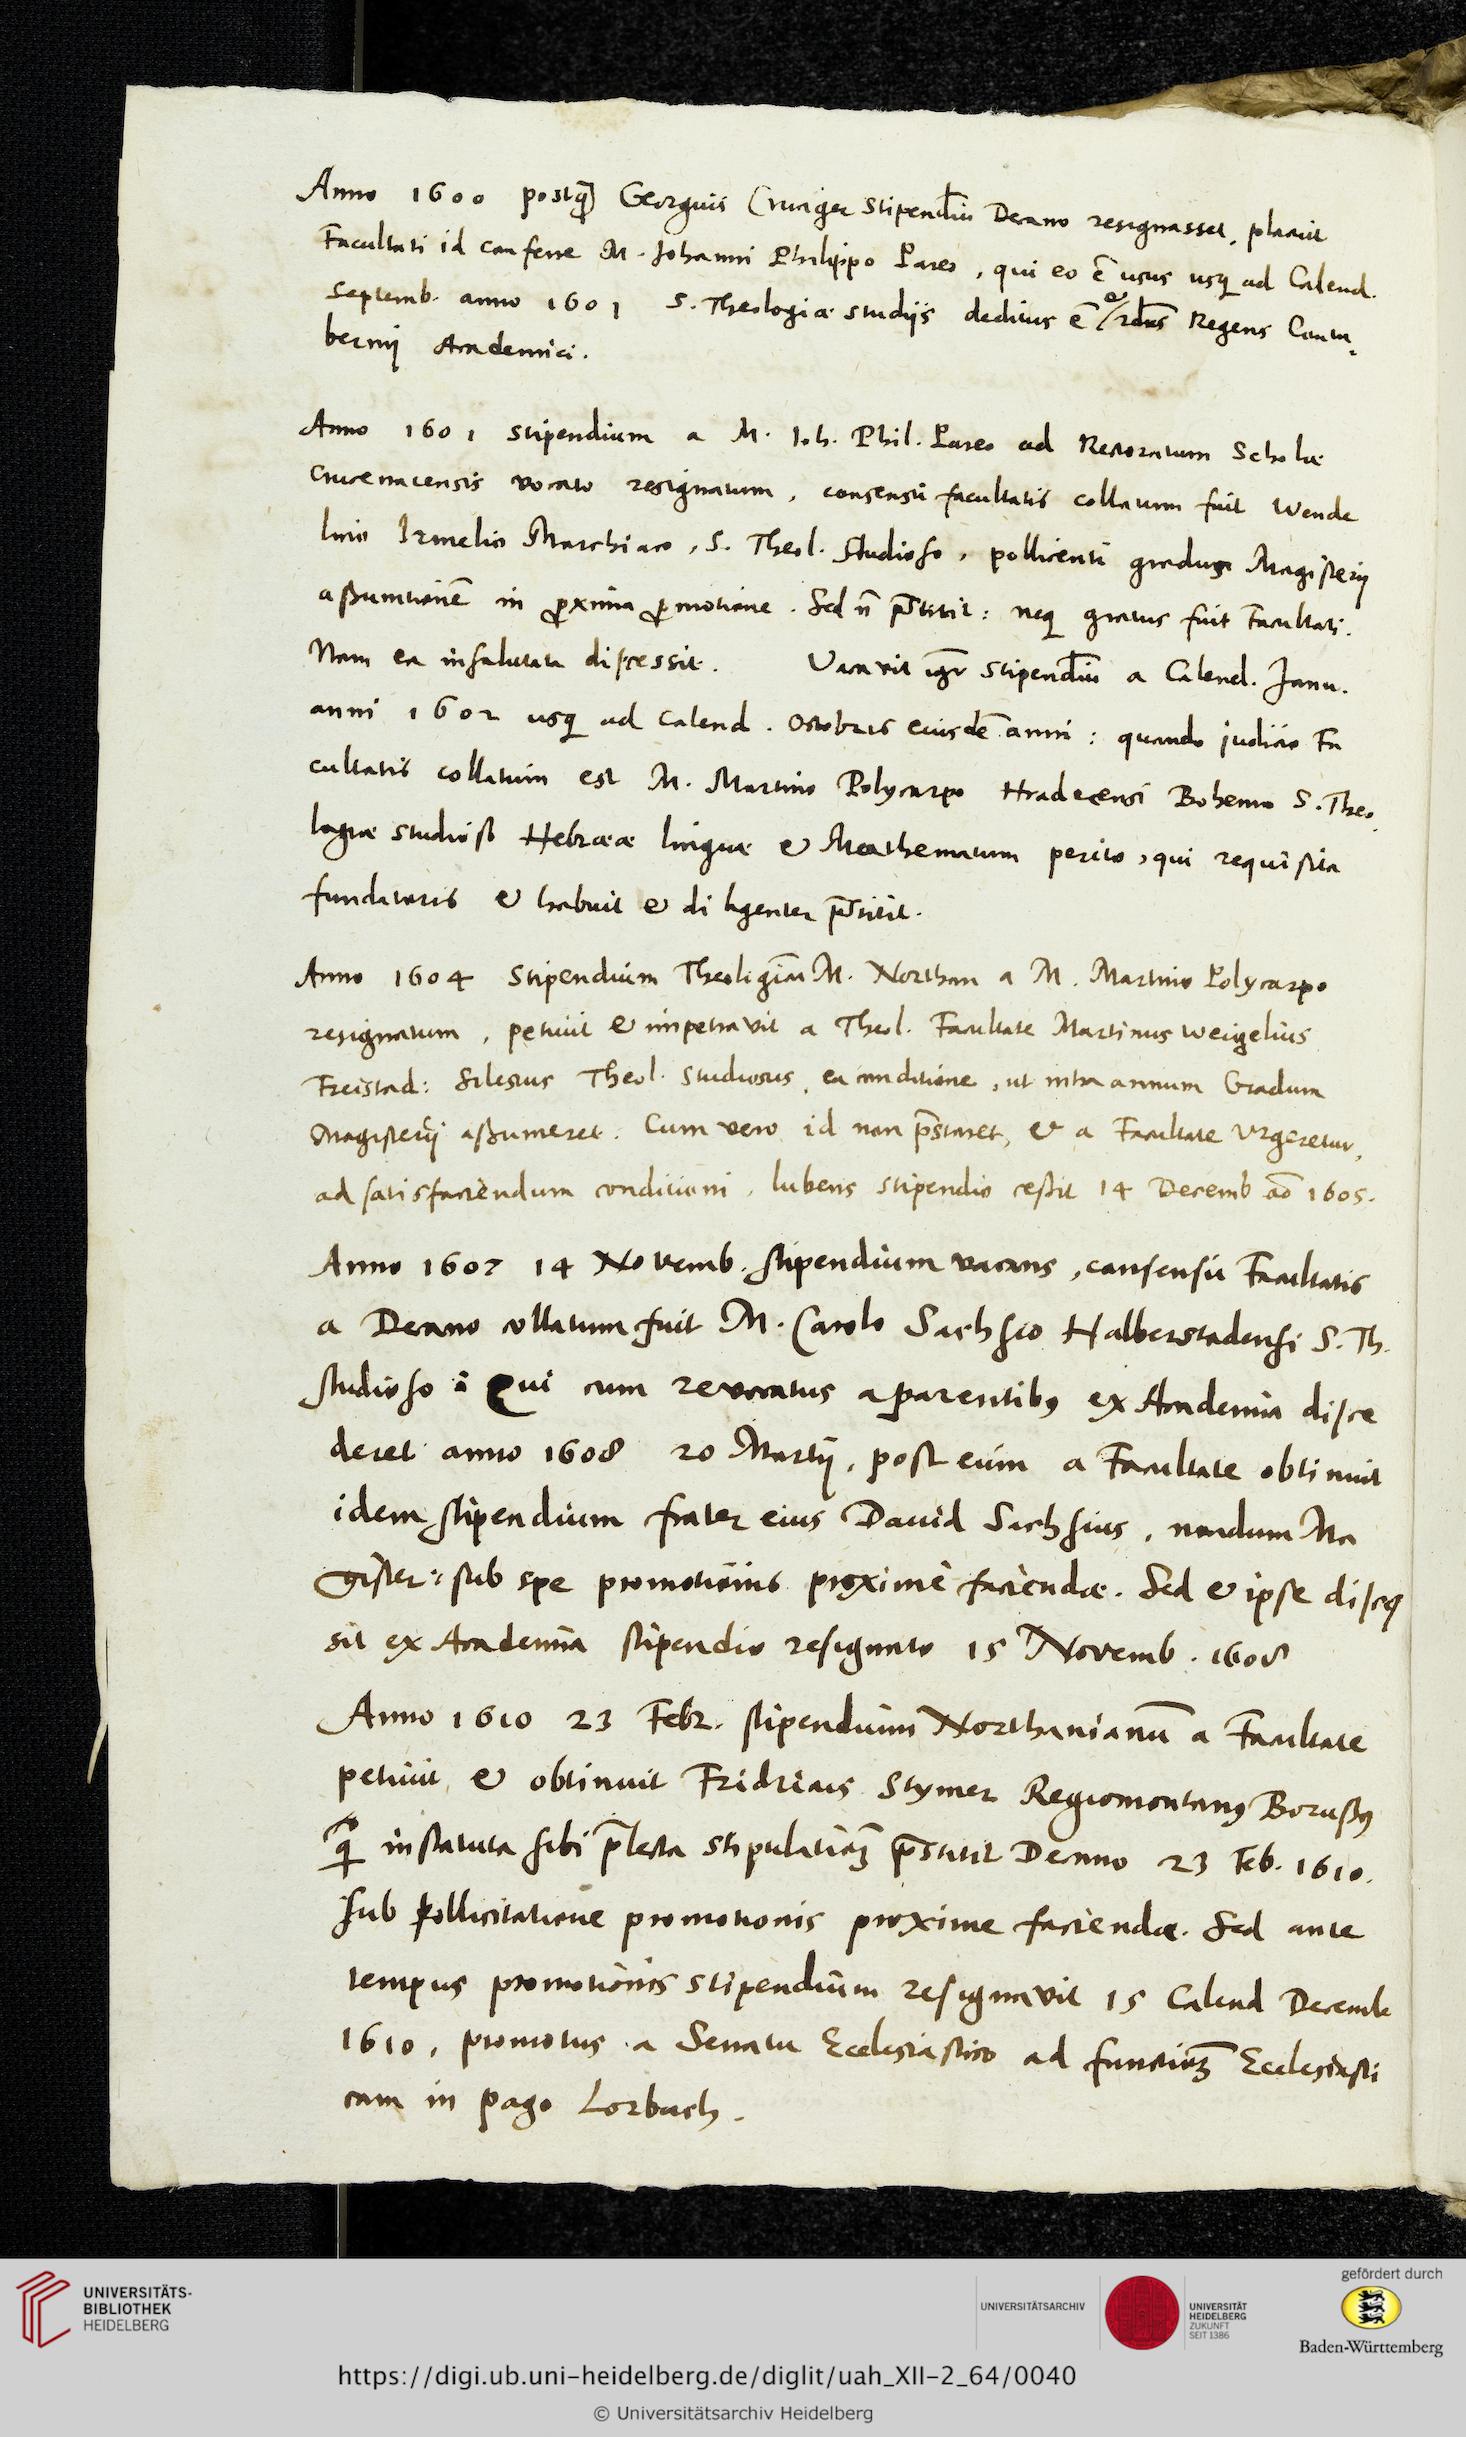 Anno 1600 postq̃ Georgius Cruciger Stipendiũ Decano resignasset, placuit
Facultati id conferre M. Johanni Philippo Pareo, qui eo ẽ usus usq ad Calend.
Septemb. anno 1601 S. Theologiæ studijs deditus ẽ & Regens Contu-
bernij Academici.
Anno 1601 stipendium a M. Joh. Phil. Pareo ad Rectoratum Scholæ
Crucenacensis vocato resignatum, consensu facultatis collatum fuit Wende
lino Irmelio Marchiaco, S. Theol. Studioso, pollicenti gradus Magisterij
aßumtionẽ in proxima promotione. Sed ñ p̃stitit: neq gratus fuit Facultati.
Nam ea insalutata discessit. Vacavit igr Stipendiũ a Calend. Janu.
anni 1602 usq ad Calend. Octobris eiusdẽ anni: quando judicio Fa
cultatis collatum est M. Martino Polycarpo Hradecensi Bohemo S. Theo
logiæ studioso Hebrææ linguæ & Mathematum perito, qui requisita
fundatoris & habuit & diligenter p̃stitit.
Anno 1604 Stipendium Theologicũ M. Northan a M. Martino Polycarpo
resignatum, petiuit & impetravit a Theol. Facultate Martinus Weigelius
Freistad: Silesius Theol. Studiosus, ea conditione, ut intra annum Gradum
Magisterij aßumeret. Cum vero id non p̃staret, & a Facultate Urgeretur,
ad satisfaciendum conditioni, lubens stipendio ceßit 14 Decemb aõ 1605.
Anno 1607 14 Novemb. stipendium vacans, consensu Facultatis
a Decano collatum fuit M. Carolo Sachsio Halberstadensi S. Th.
studioso: Qui cum revocatus a parentibus ex Academia disce
deret anno 1608 20 Martij, post eum a Facultate obtinuit
idem stipendium frater eius Dauid Sachsius, nondum Ma
gister: sub spe promotionis proximè faciendæ. Sed & ipse disceß
sit ex Academia stipendio resignato 15 Novemb. 1608
Anno 1610 23 Febr. stipendium Northanianũ a Facultate
petiuit & obtinuit Fridricus Stymer Regiomontanus Borußus
q̃ instatuta sibi p̃lecta stipulationẽ p̃stitit Decano 23 Feb. 1610.
sub pollicitatione promotionis proxime faciendæ. Sed ante
tempus promotionis stipendium resignavit 15 Calend Decemb
1610, promotus a Senatu Ecclesiastico ad functionẽ Ecclesiasti
cam in pago Lorbach.
UNIVERSITÄTS-
BIBLIOTHEK
HEIDELBERG
UNIVERSITÄTSARCHIV
UNIVERSITÄT
HEIDELBERG
ZUKUNFT
SEIT 1386
gefördert durch
Baden-Württemberg
https://digi.ub.uni-heidelberg.de/diglit/uah_XII-2_64/0040
© Universitätsarchiv Heidelberg